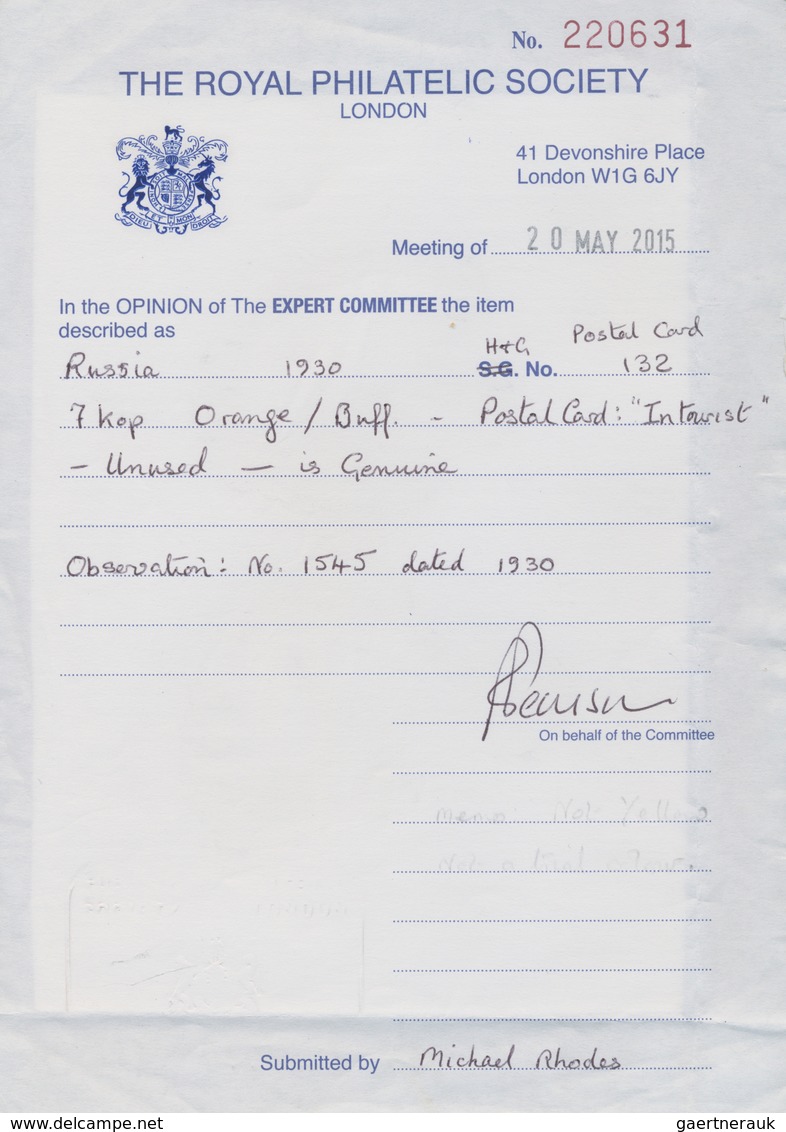 No. 220631
THE ROYAL PHILATELIC SOCIETY
LONDON
41 Devonshire Place
London W1G 6JY
DIEU ET MON DROIT
Meeting of 20 MAY 2015
In the OPINION of The EXPERT COMMITTEE the item
described as
H&G Postal Card
Russia 1930 S.G. No. 132
7 kop Orange / Buff. - Postal Card: "Intourist"
- Unused - is Genuine
Observation: No. 1545 dated 1930
On behalf of the Committee
Memo: Not Yellow
Not a trial colour
Submitted by Michael Rhodes
www.delcampe.net
gaertnerauk